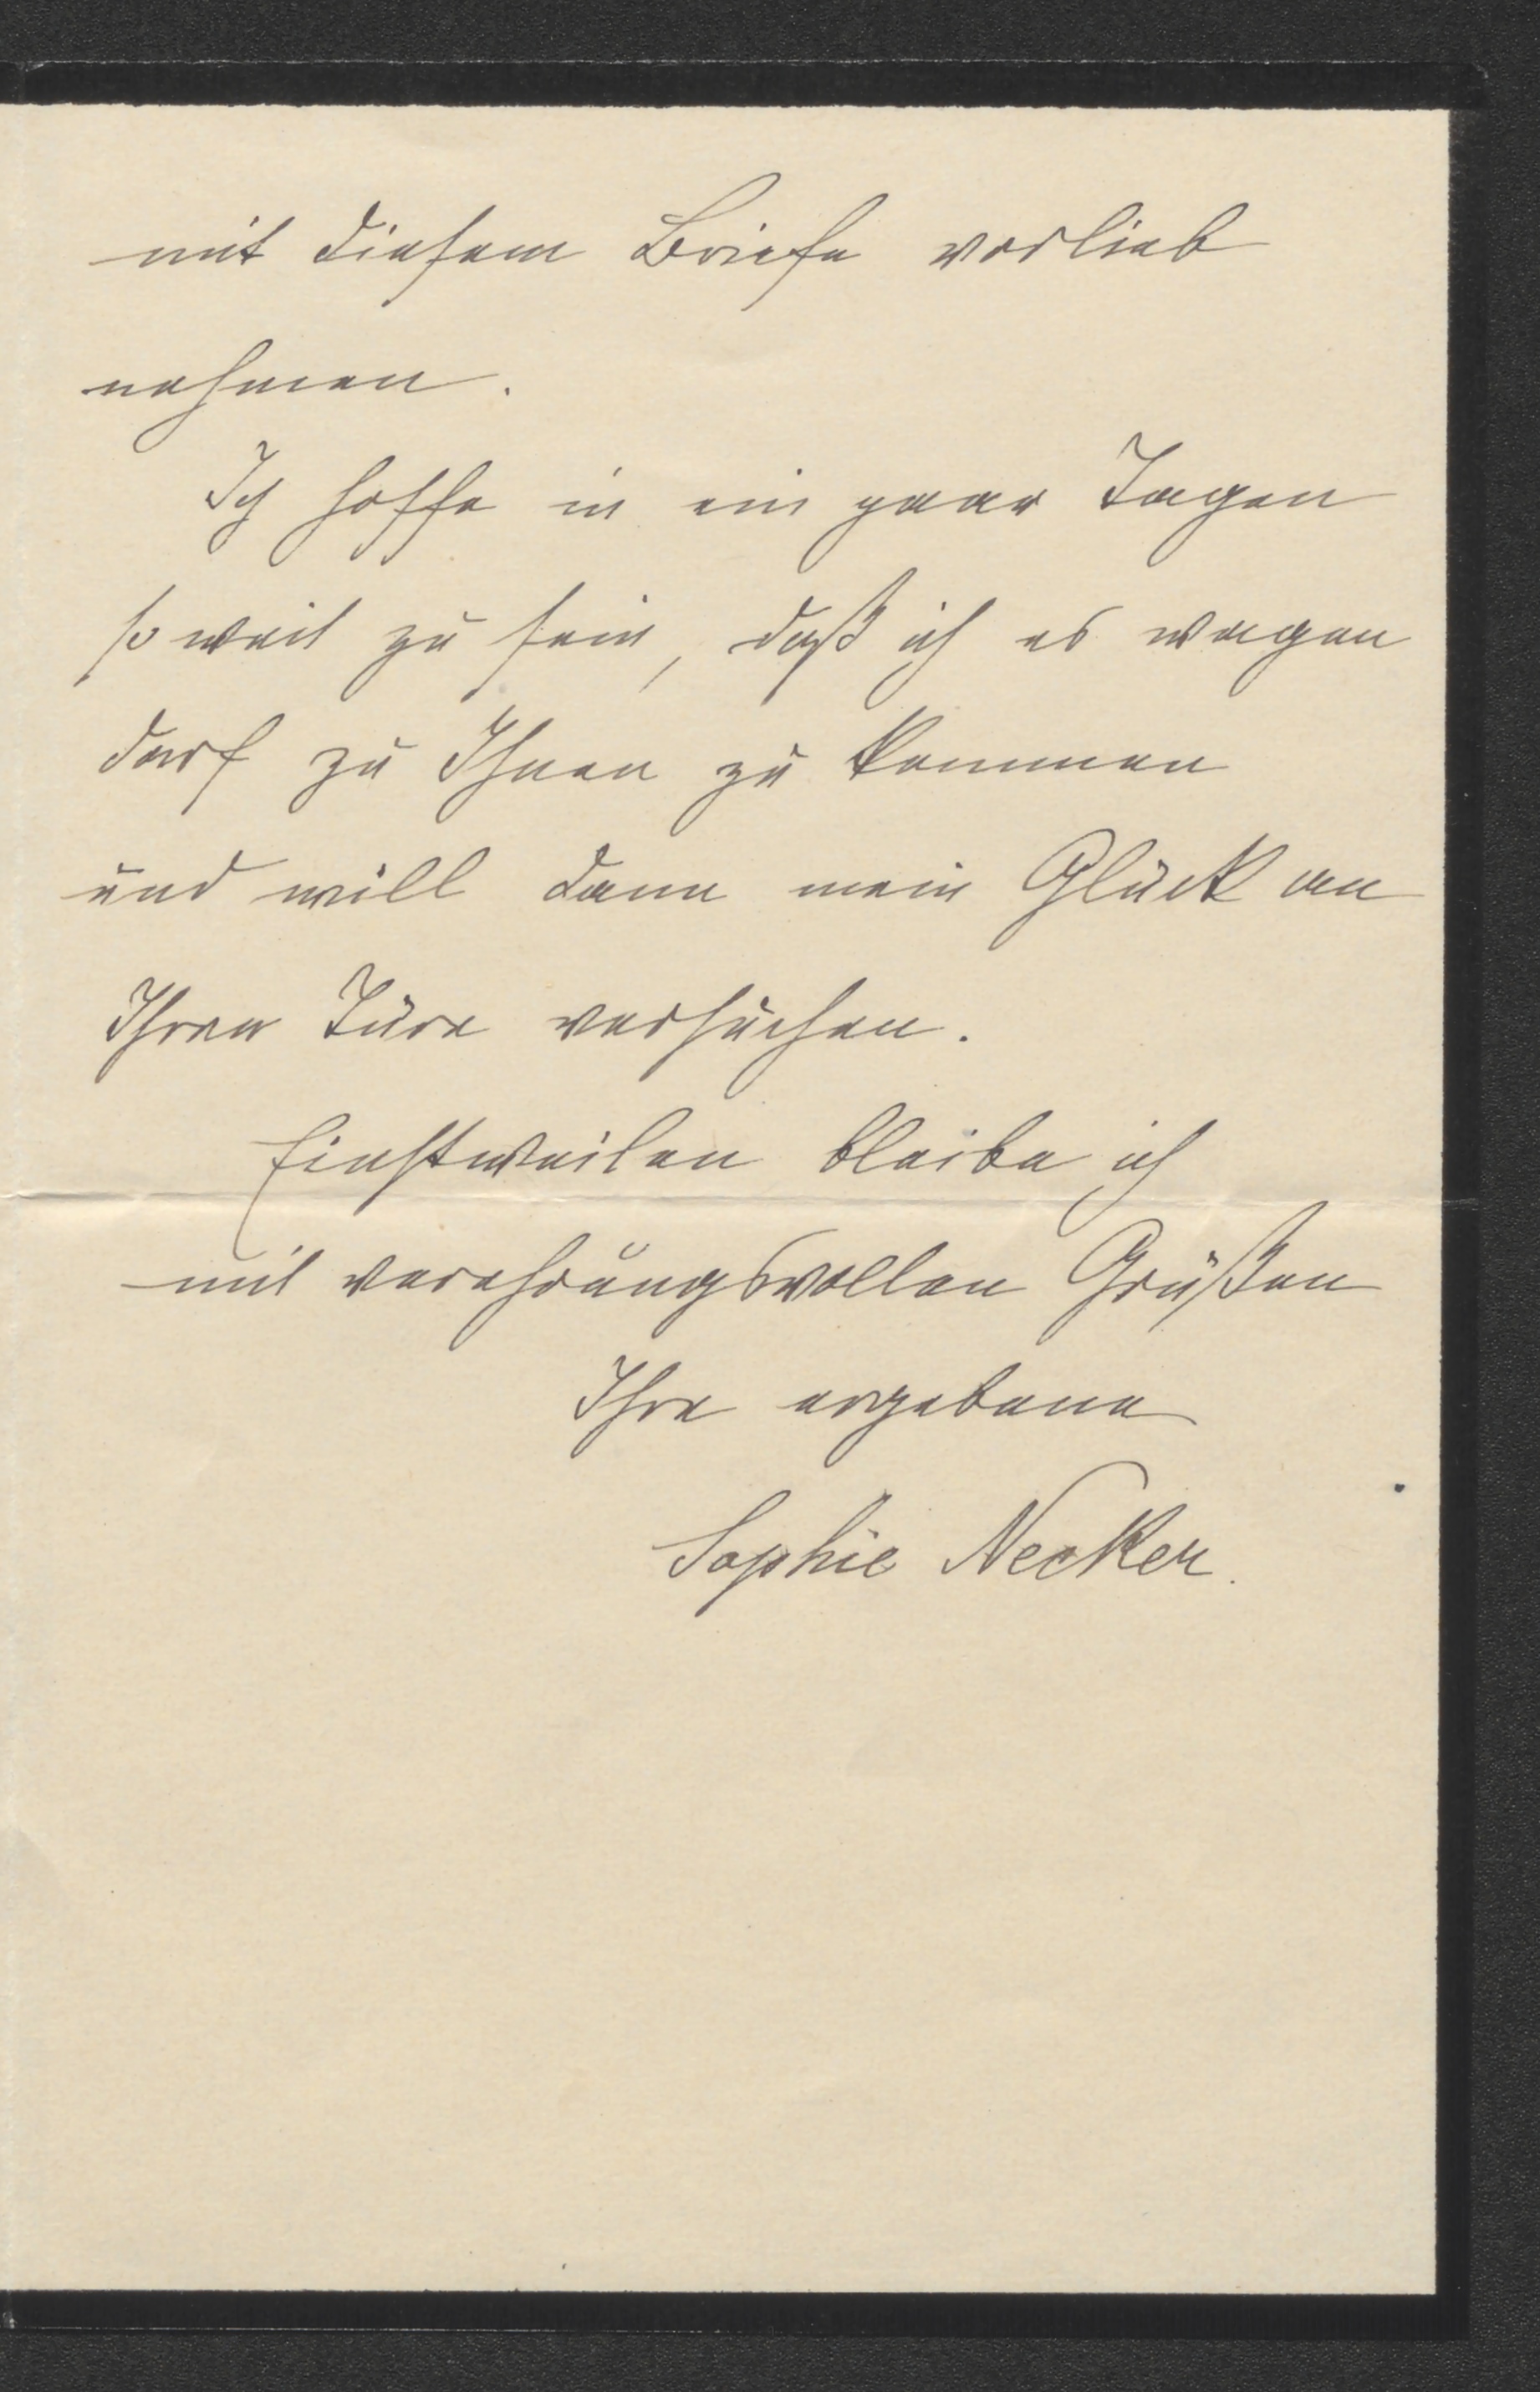 mit diesem Briefe vorlieb
nehmen.
Ich hoffe in ein paar Tagen
so weit zu sein, daß ich es wagen
darf zu Ihnen zu kommen
und will dann mein Glück an
Ihrer Türe versuchen.
Einstweilen bleibe ich
mit verehrungsvollen Grüßen
Ihre ergebene
Sophie Necker.